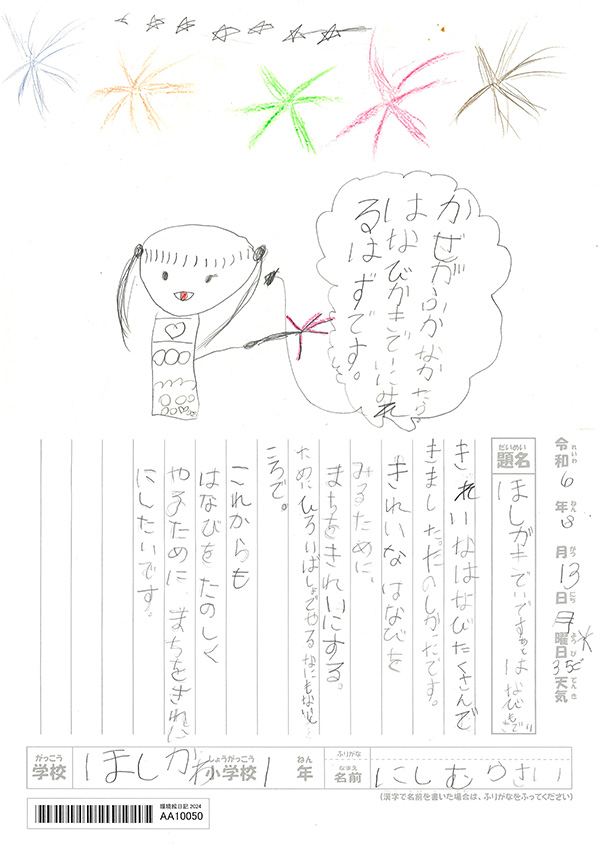 かぜがふかなかたら
はなびがきでいにみれ
るはずです。
令和6年8月13日 曜日 35℃ 天気
れいわ ねん がつ にち ようび てんき
だいめい
題名
ほしがきでいですね はなびも
きれいなはなびたくさんで
きました。たのしかったです。
きれいなはなびを
みるために、
まちをきれいにする。
ために、ひろいばしょでやる なにもないと
ころで。
これからも
はなびをたのしく
やるために まちをきれに
にしたいです。
がっこう
学校
ほしかわ小学校
しょうがっこう
1年
ねん
ふりがな
なまえ
名前
にしむらさい
(漢字で名前を書いた場合は、ふりがなをふってください)
環境絵日記 2024
AA10050